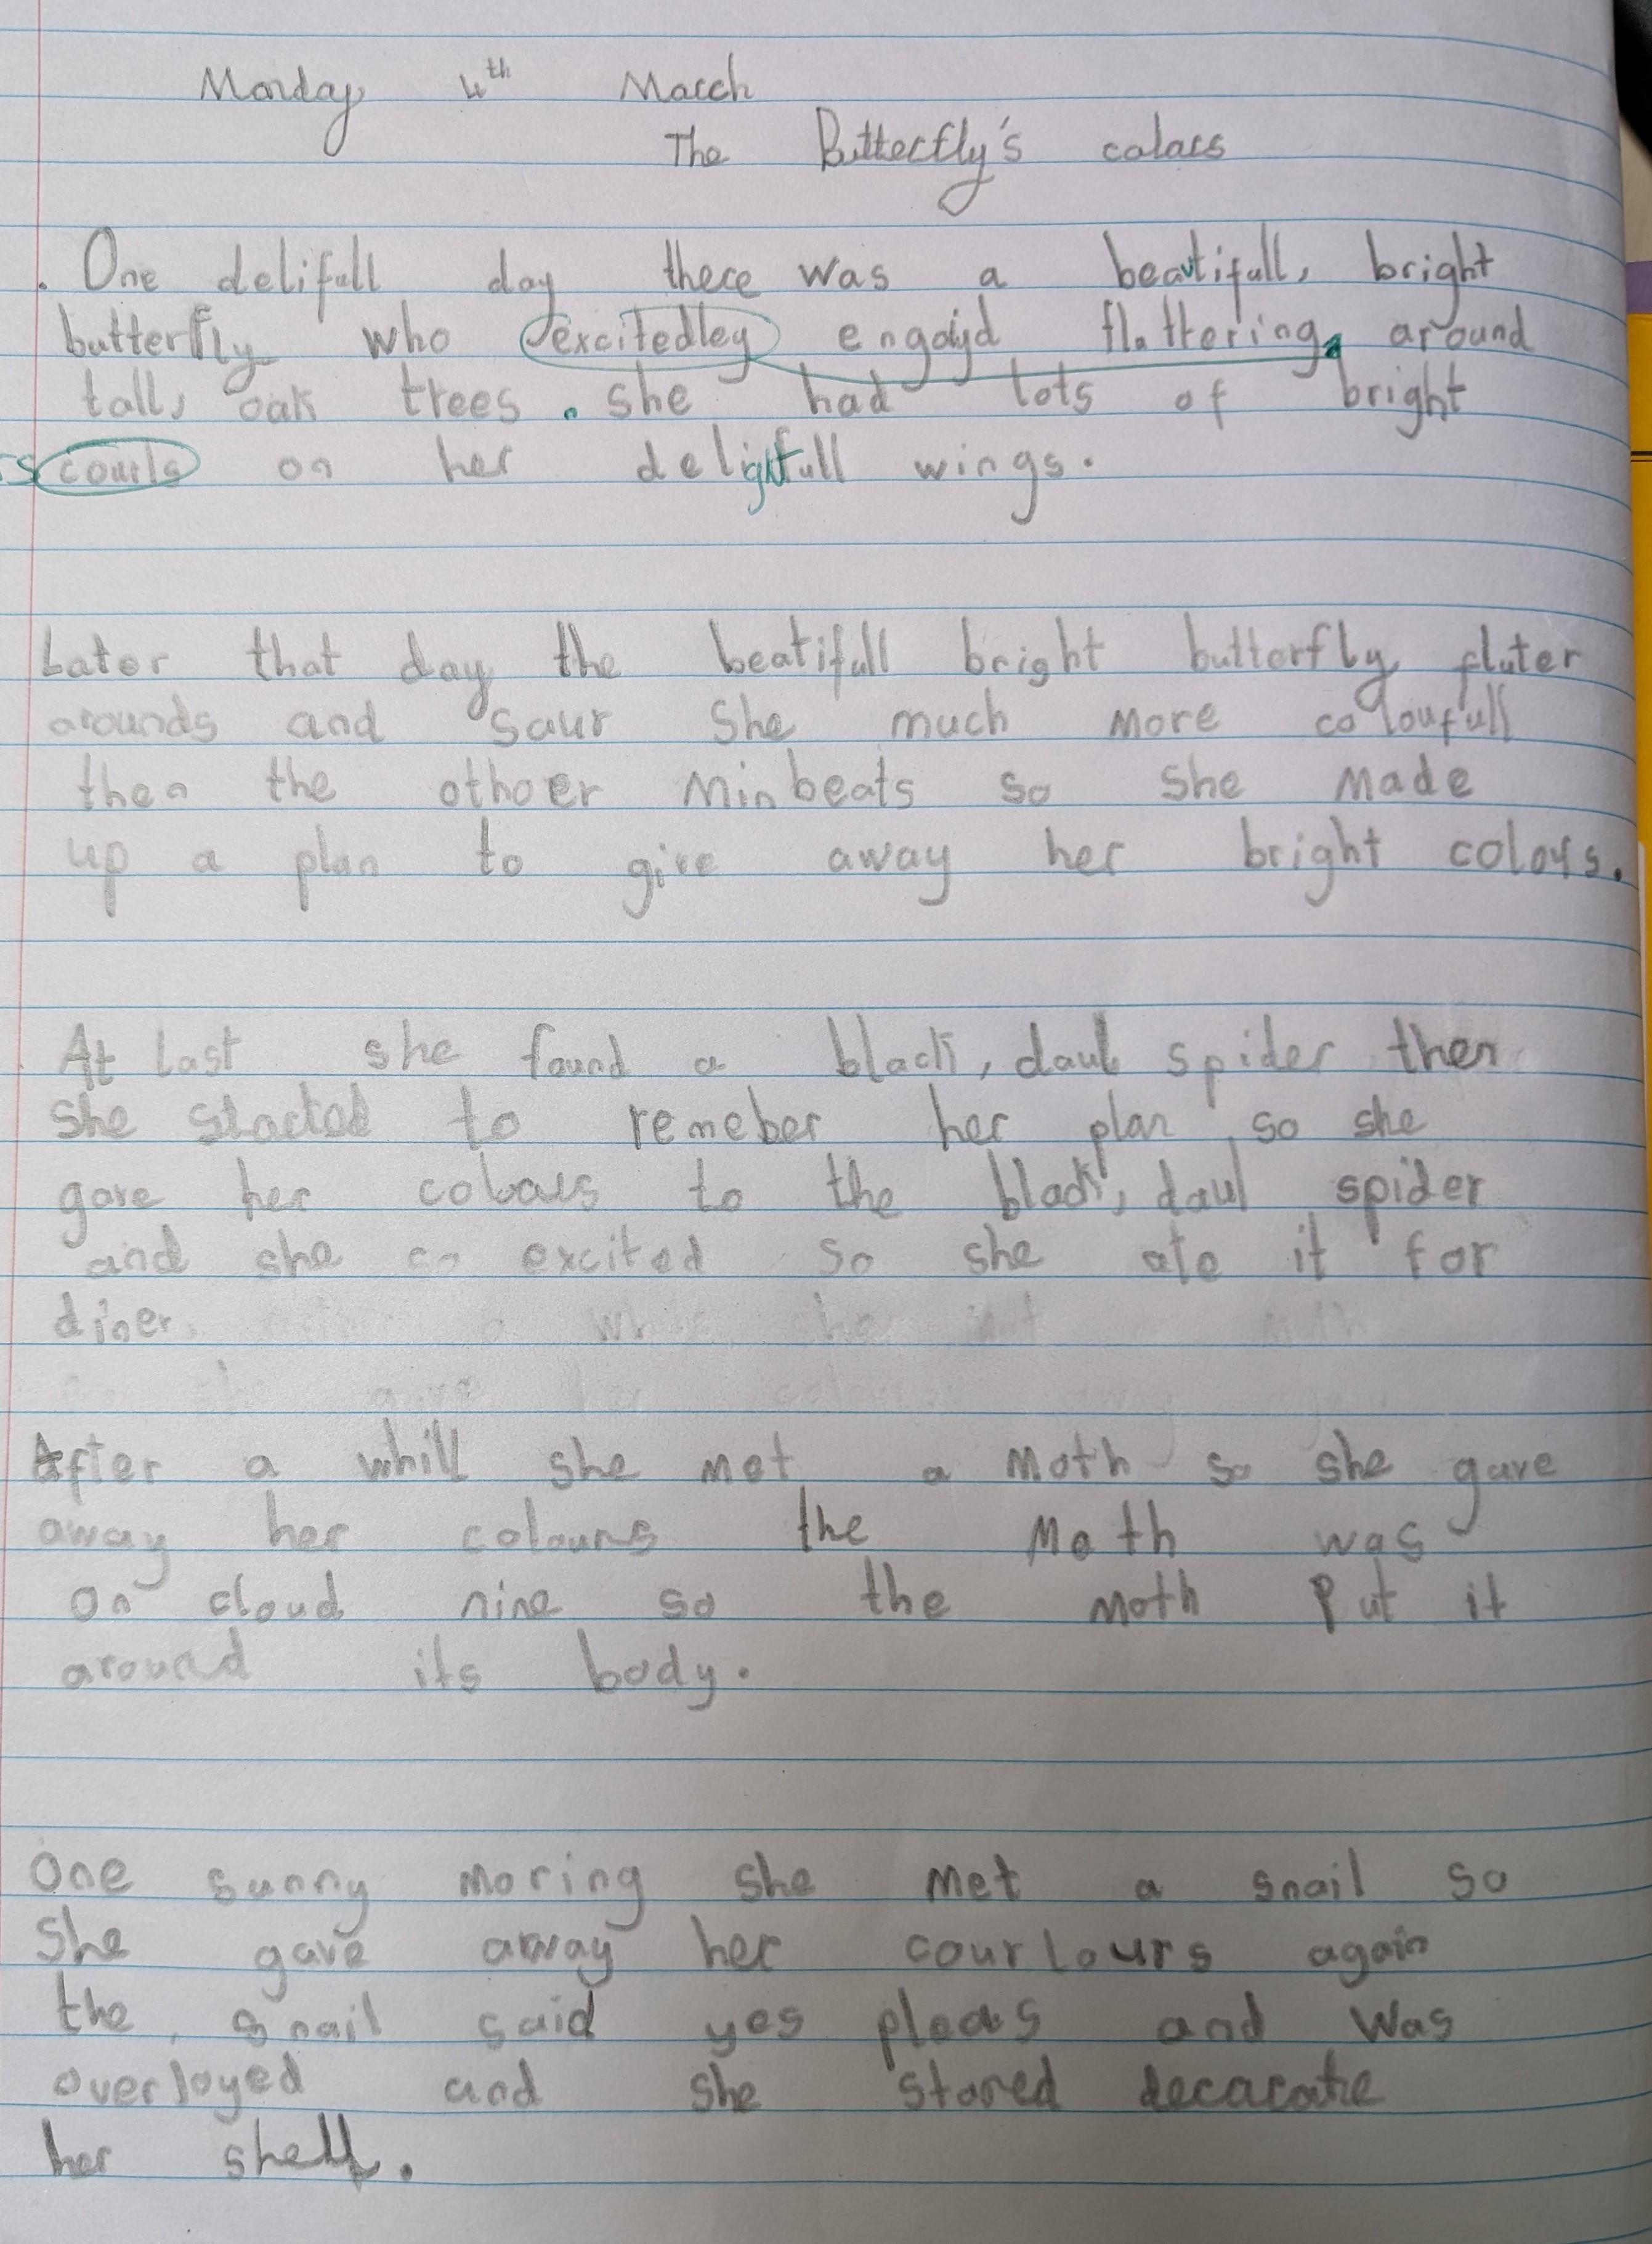 Monday 4th March
The Butterfly's colars
. One delifull day there was a beautifull, bright
butterfly who excitedley engoyd fluttering, around
tall, oak trees. she had lots of bright
courls on her delightfull wings.
Later that day the beatifull bright butterfly fluter
arounds and saur She much more coloufull
then the othoer Minbeats so she made
up a plan to give away her bright colours.
At last she found a black, daul spider then
she started to remeber her plan so she
gave her colours to the black, daul spider
and she so excited so she ate it for
diner.
After a whill she met a moth so she gave
away her colours the Moth was
on cloud nine so the moth Put it
around its body.
One sunny moring she met a snail so
she gave away her courlours again
the snail said yes pleas and was
overloyed and she stared decacate
her shell.